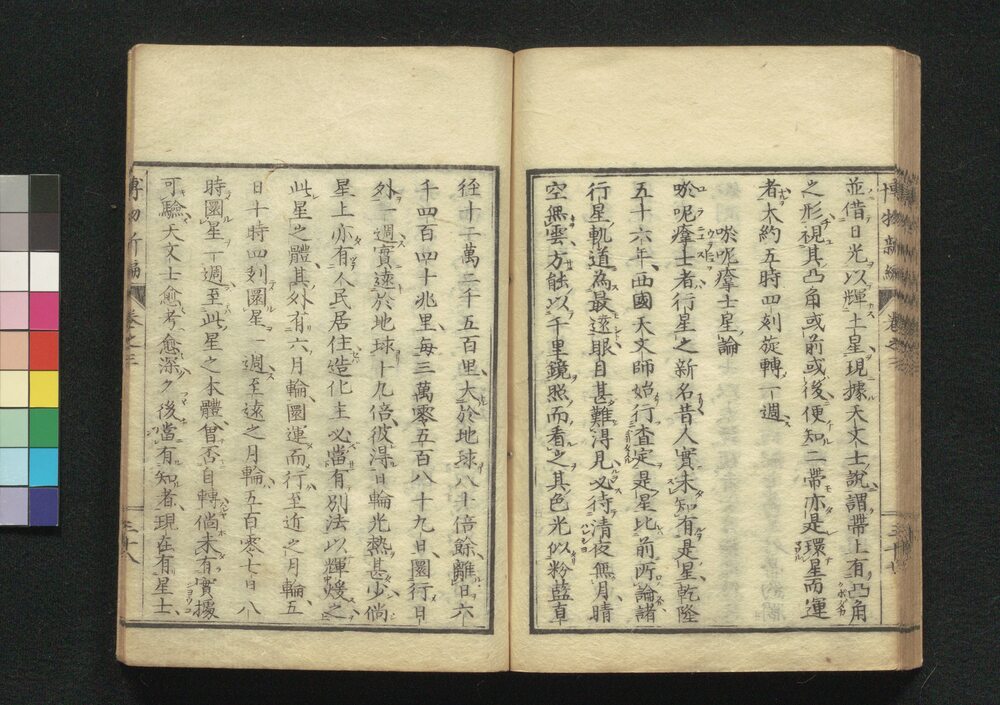 並借日光以輝土星現據天文士說謂帶上有凸角
之形視其凸角或前或後便知二帶亦是環星而運
者大約五時四刻旋轉一週
唹呢瘴士星論
唹呢瘴士者行星之新名昔人實未知有是星乾隆
五十六年西國天文師始行查定是星比前所論諸
行星軌道為最遠眼目甚難淂見必待清夜無月晴
空無雲方能以千里鏡照而看之其色光似粉藍直
徑十二萬二千五百里大於地球八十倍餘離日六
千四百四十兆里每三萬零五百八十九日圜行日
外一週實遠於地球十九倍彼淂日輪光熱甚少倘
星上亦有人民居住造化主必當有別法以輝煖之
此星之體其外有六月輪圜運而行至近之月輪五
日十時四刻圜星一週至遠之月輪五百零七日八
時圜星一週至此星之本體曾否自轉倘未有實據
可驗天文士愈考愈深久後當有知者現在有星士
博物新編 卷之三 三十八